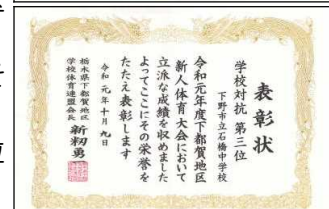 表彰状
学校対抗 第三位
下野市立石橋中学校
令和元年度下都賀地区
新人体育大会において
立派な成績を収めました
よってここにその栄誉を
たたえ表彰します
令和元年十月九日
栃木県下都賀地区
学校体育連盟会長 新籾勇